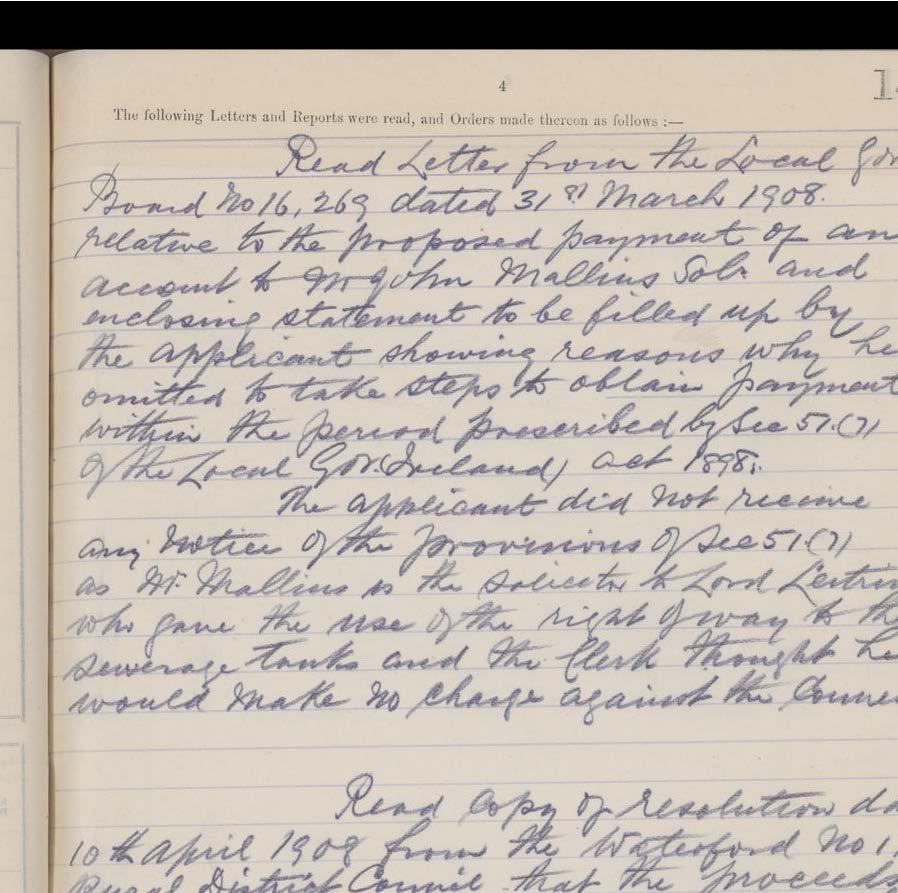 4
1
The following Letters and Reports were read, and Orders made thereon as follows :—
Read Letter from the Local Gov
Board No 16,269 dated 31st March 1908.
relative to the proposed payment of an
account to Mr John Mallins Solr. and
enclosing statement to be filled up by
the applicant showing reasons why he
omitted to take steps to obtain payment
within the period prescribed by Sec 51.(7)
of the Local Gov. (Ireland) Act 1898.
The applicant did not receive
any notice of the provisions of Sec 51.(7)
as Mr. Mallins is the Solicitor to Lord Leitrim
who gave the use of the right of way to the
sewerage tanks and the Clerk thought he
would make no charge against the Counci
Read Copy of resolution da
10th April 1908 from the Waterford No 1.
Rural District Council that the proceeds